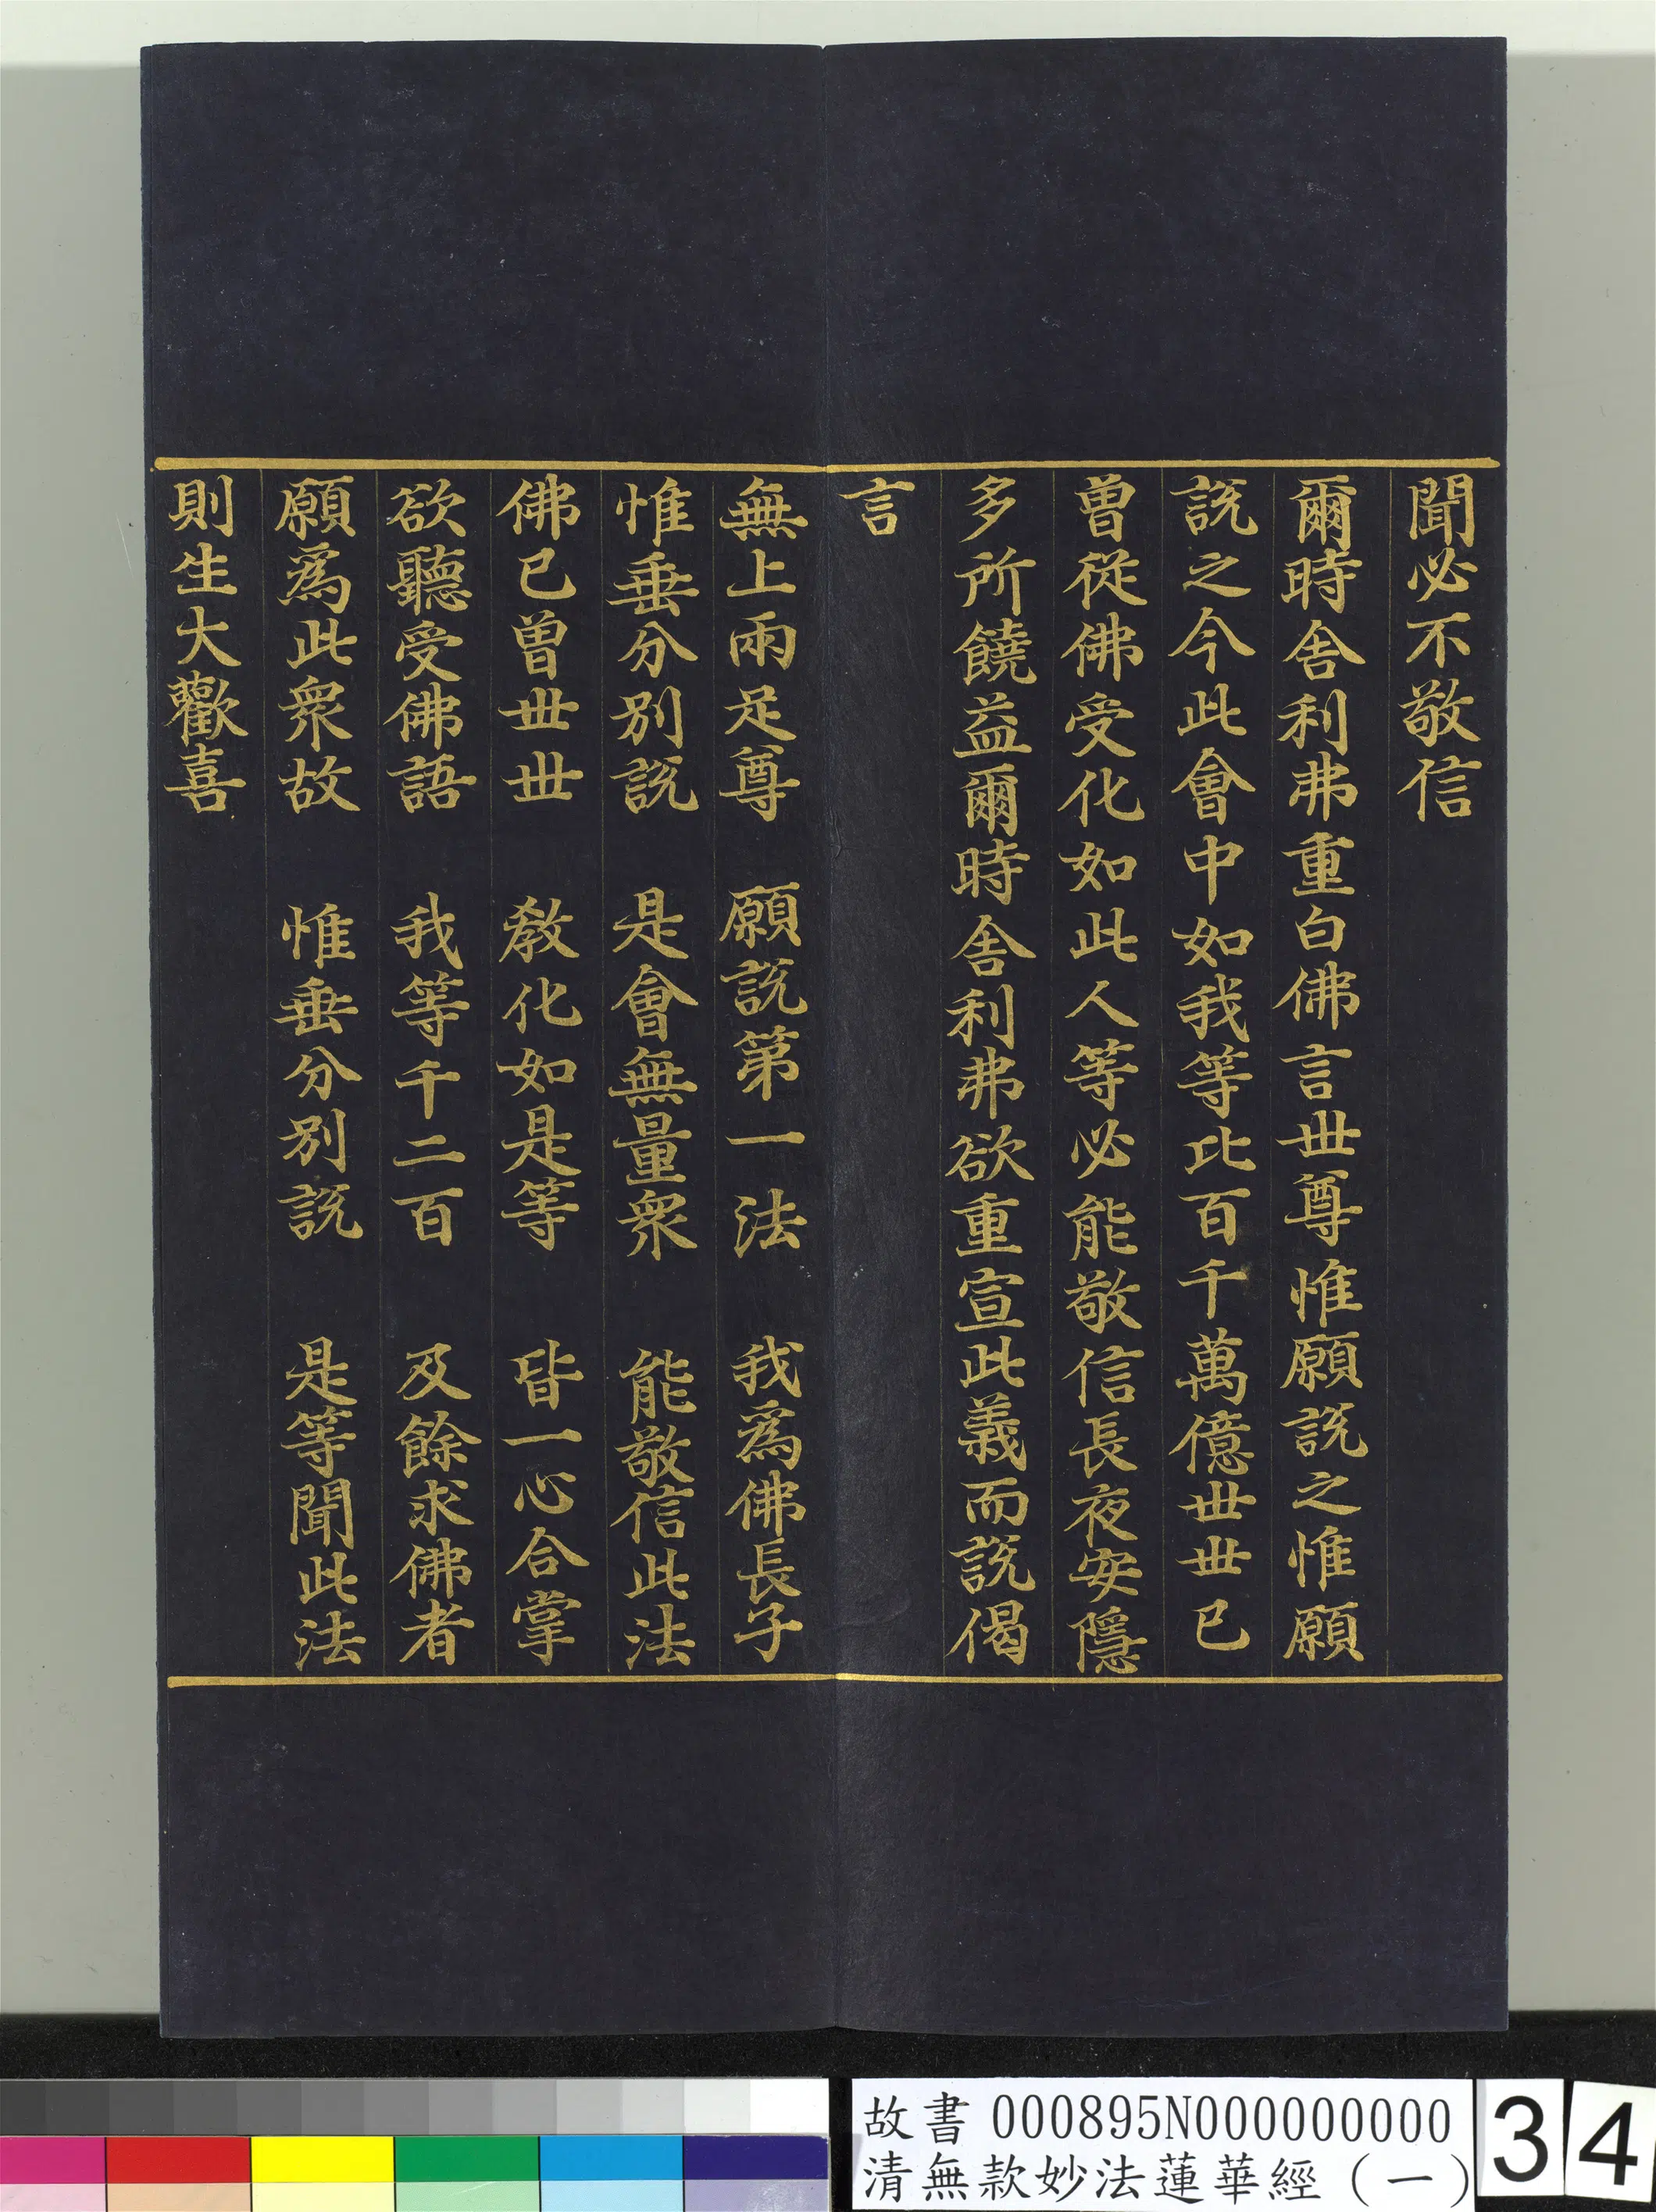 聞必不敬信
爾時舍利弗重白佛言世尊惟願說之惟願
說之今此會中如我等比百千萬億世世已
曾從佛受化如此人等必能敬信長夜安隱
多所饒益爾時舍利弗欲重宣此義而說偈
言
無上兩足尊　願說第一法　我爲佛長子
惟垂分別說　是會無量衆　能敬信此法
佛已曾世世　教化如是等　皆一心合掌
欲聽受佛語　我等千二百　及餘求佛者
願爲此衆故　惟垂分別說　是等聞此法
則生大歡喜
故書 000895N000000000
清無款妙法蓮華經（一）
34